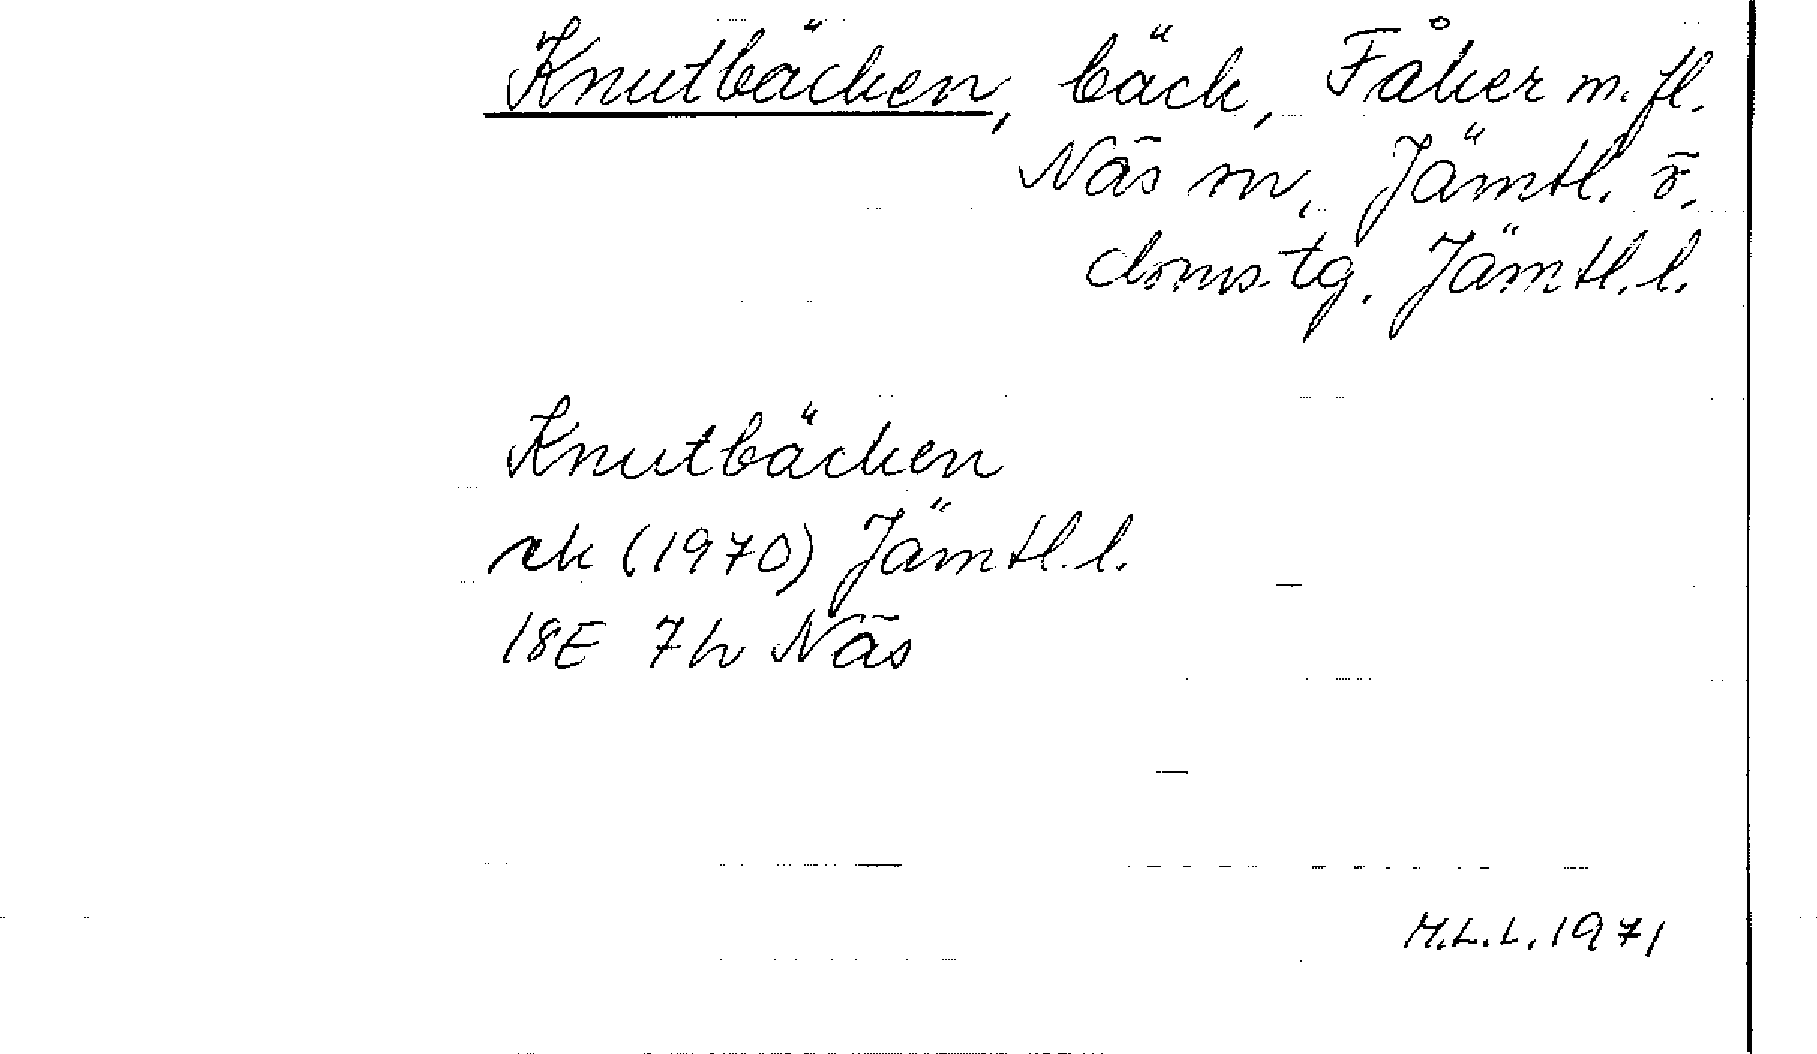 Knutbäcken, bäck, Fåker m. fl.
Näs sn, Jämtl. ö.
doms. tg. Jämtl. l.
Knutbäcken
rk (1970) Jämtl. l.
18E 7h Näs
M.L.L. 1971